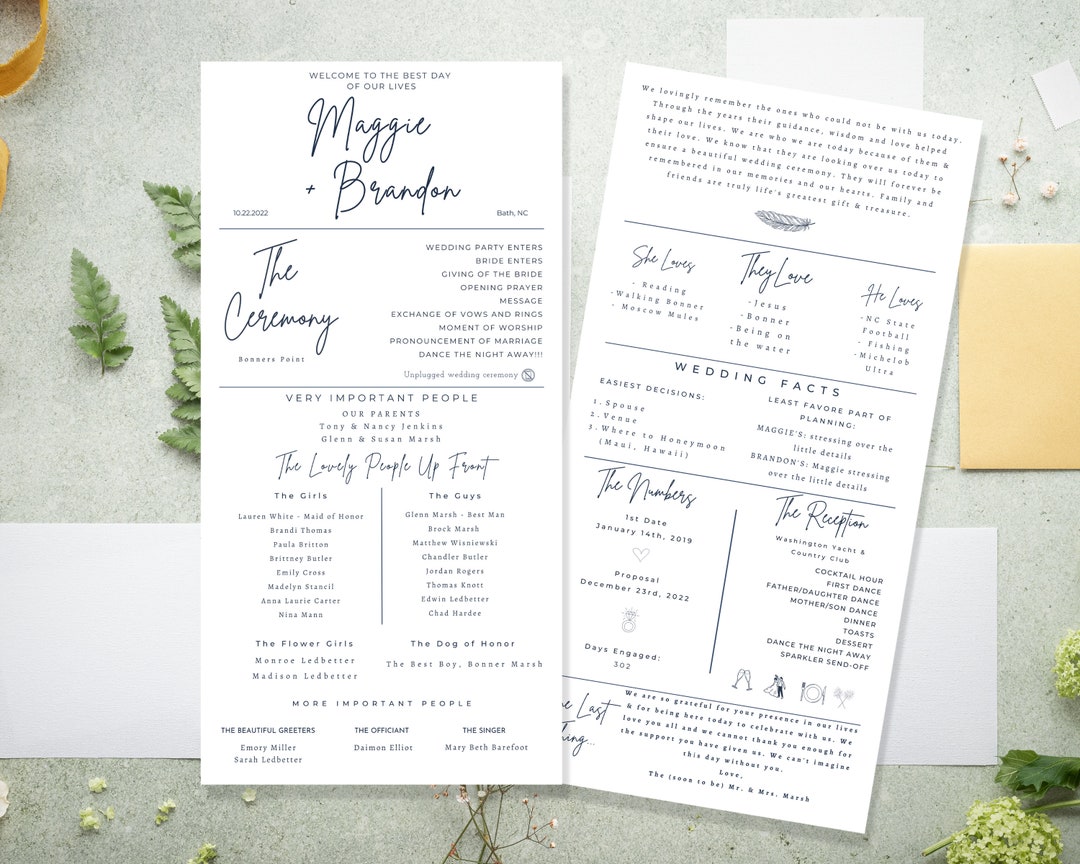 WELCOME TO THE BEST DAY
OF OUR LIVES
Maggie
+ Brandon
10.22.2022
Bath, NC
The
Ceremony
Bonners Point
WEDDING PARTY ENTERS
BRIDE ENTERS
GIVING OF THE BRIDE
OPENING PRAYER
MESSAGE
EXCHANGE OF VOWS AND RINGS
MOMENT OF WORSHIP
PRONOUNCEMENT OF MARRIAGE
DANCE THE NIGHT AWAY!!!
Unplugged wedding ceremony
VERY IMPORTANT PEOPLE
OUR PARENTS
Tony & Nancy Jenkins
Glenn & Susan Marsh
The Lovely People Up Front
The Girls
Lauren White - Maid of Honor
Brandi Thomas
Paula Britton
Brittney Butler
Emily Cross
Madelyn Stancil
Anna Laurie Carter
Nina Mann
The Guys
Glenn Marsh - Best Man
Brock Marsh
Matthew Wisniewski
Chandler Butler
Jordan Rogers
Thomas Knott
Edwin Ledbetter
Chad Hardee
The Flower Girls
Monroe Ledbetter
Madison Ledbetter
The Dog of Honor
The Best Boy, Bonner Marsh
MORE IMPORTANT PEOPLE
THE BEAUTIFUL GREETERS
Emory Miller
Sarah Ledbetter
THE OFFICIANT
Daimon Elliot
THE SINGER
Mary Beth Barefoot
We lovingly remember the ones who could not be with us today.
Through the years their guidance, wisdom and love helped
shape our lives. We are who we are today because of them &
their love. We know that they are looking over us today to
ensure a beautiful wedding ceremony. They will forever be
remembered in our memories and our hearts. Family and
friends are truly life's greatest gift & treasure.
She Loves
- Reading
-Walking Bonner
- Moscow Mules
They Love
-Jesus
-Bonner
-Being on
the water
He Loves
-NC State
Football
- Fishing
-Michelob
Ultra
WEDDING FACTS
EASIEST DECISIONS:
1. Spouse
2. Venue
3. Where to Honeymoon
(Maui, Hawaii)
LEAST FAVORE PART OF
PLANNING:
MAGGIE'S: stressing over the
little details
BRANDON'S: Maggie stressing
over the little details
The Numbers
1st Date
January 14th, 2019
Proposal
December 23rd, 2022
Days Engaged:
302
The Reception
Washington Yacht &
Country Club
COCKTAIL HOUR
FIRST DANCE
FATHER/DAUGHTER DANCE
MOTHER/SON DANCE
DINNER
TOASTS
DESSERT
DANCE THE NIGHT AWAY
SPARKLER SEND-OFF
Last
We are so grateful for your presence in our lives
& for being here today to celebrate with us. We
love you all and we cannot thank you enough for
the support you have given us. We can't imagine
this day without you.
Love,
The (soon to be) Mr. & Mrs. Marsh